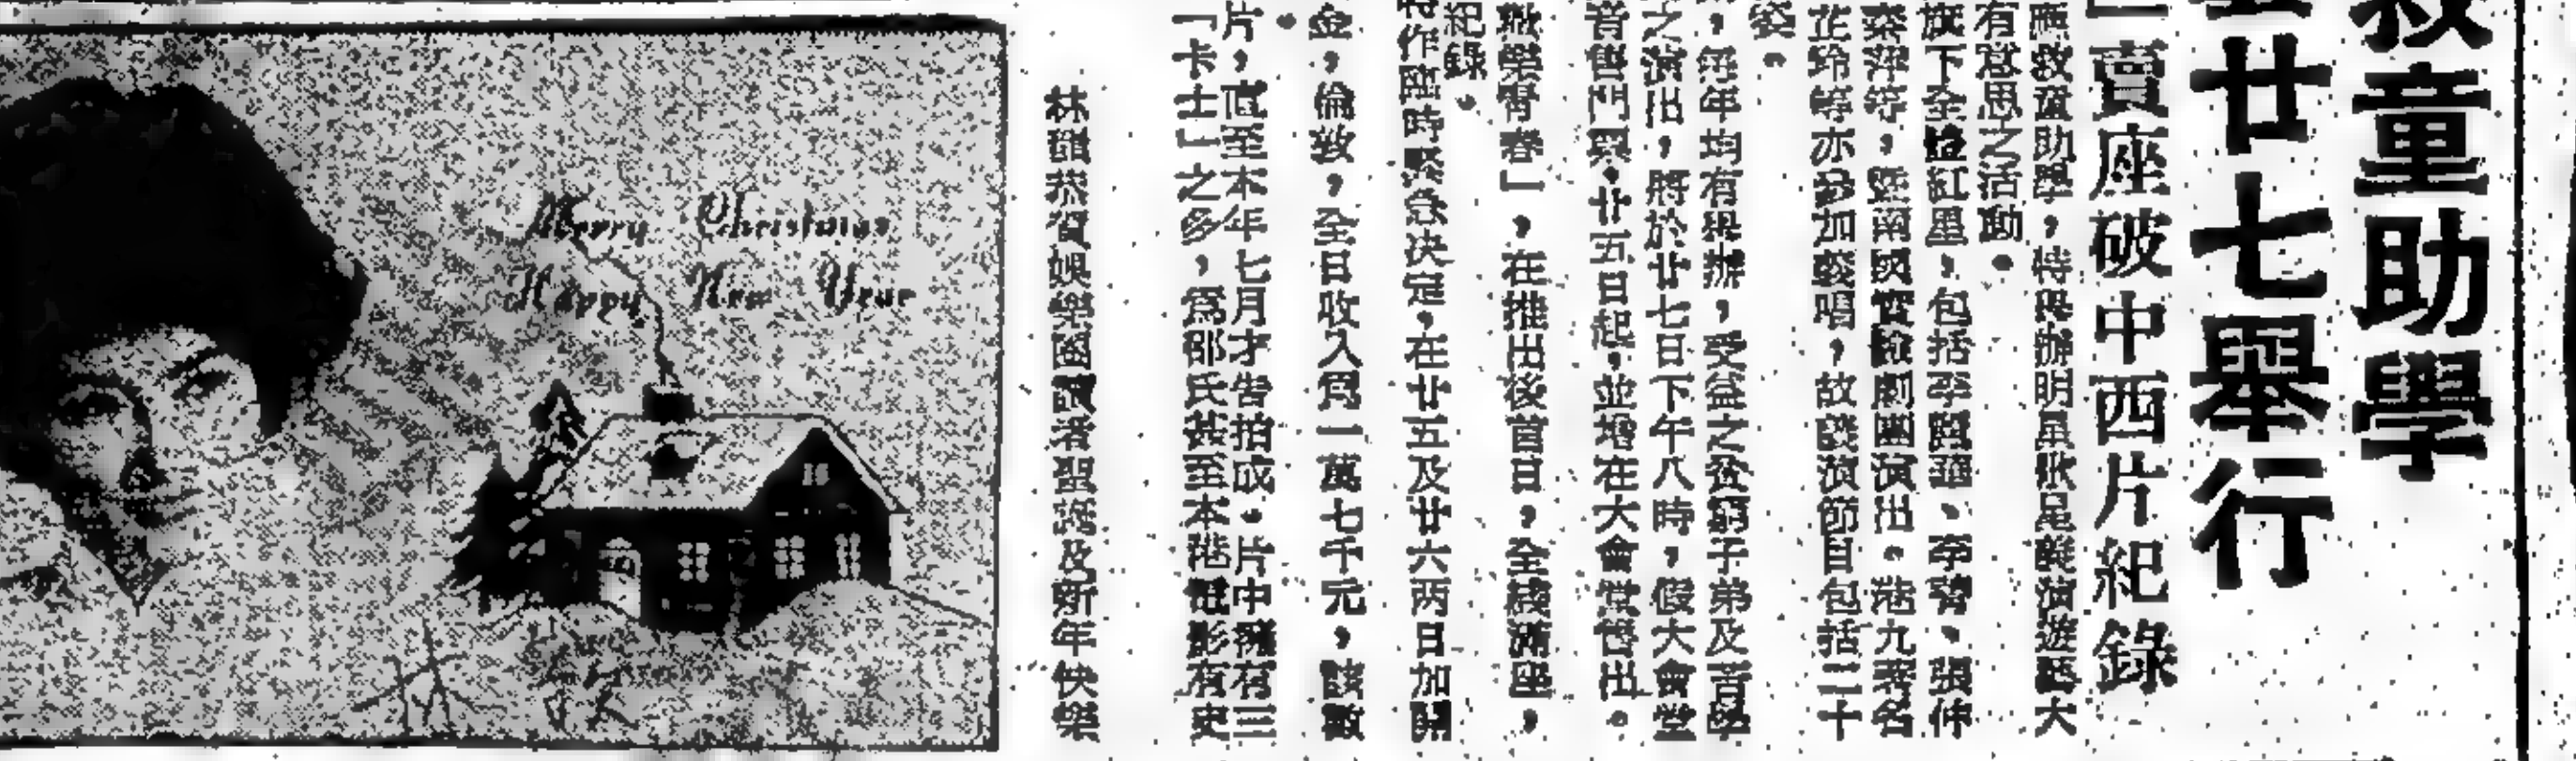 救童助學
廿七舉行
賣座破中西片紀錄
應救童助學，特舉辦明星歌星義演遊藝大
有意思之活動。
旗下全體紅星，包括李 、李菁、張仲
秦萍等，暨南國實驗劇團演出。港九著名
芷玲等亦參加義唱，故義演節目包括二十
姿。
，每年均有舉辦，受益之貧窮子弟及盲學
之演出，將於廿七日下午八時，假大會堂
音 門票，廿五日起，並增在大會堂售出。
歡樂青春」，在推出後首日，全綫滿座，
紀錄。
特作臨時緊急決定，在廿五及廿六两日加開
金，倫敦，全日收入爲一萬七千元，該數
。
片，直至本年七月才告拍成。片中擁有三
「卡士」之多，爲邵氏甚至本港電影有史
林 恭賀娛樂圈讀者聖誕及新年快樂
Merry Christmas
Happy New Year